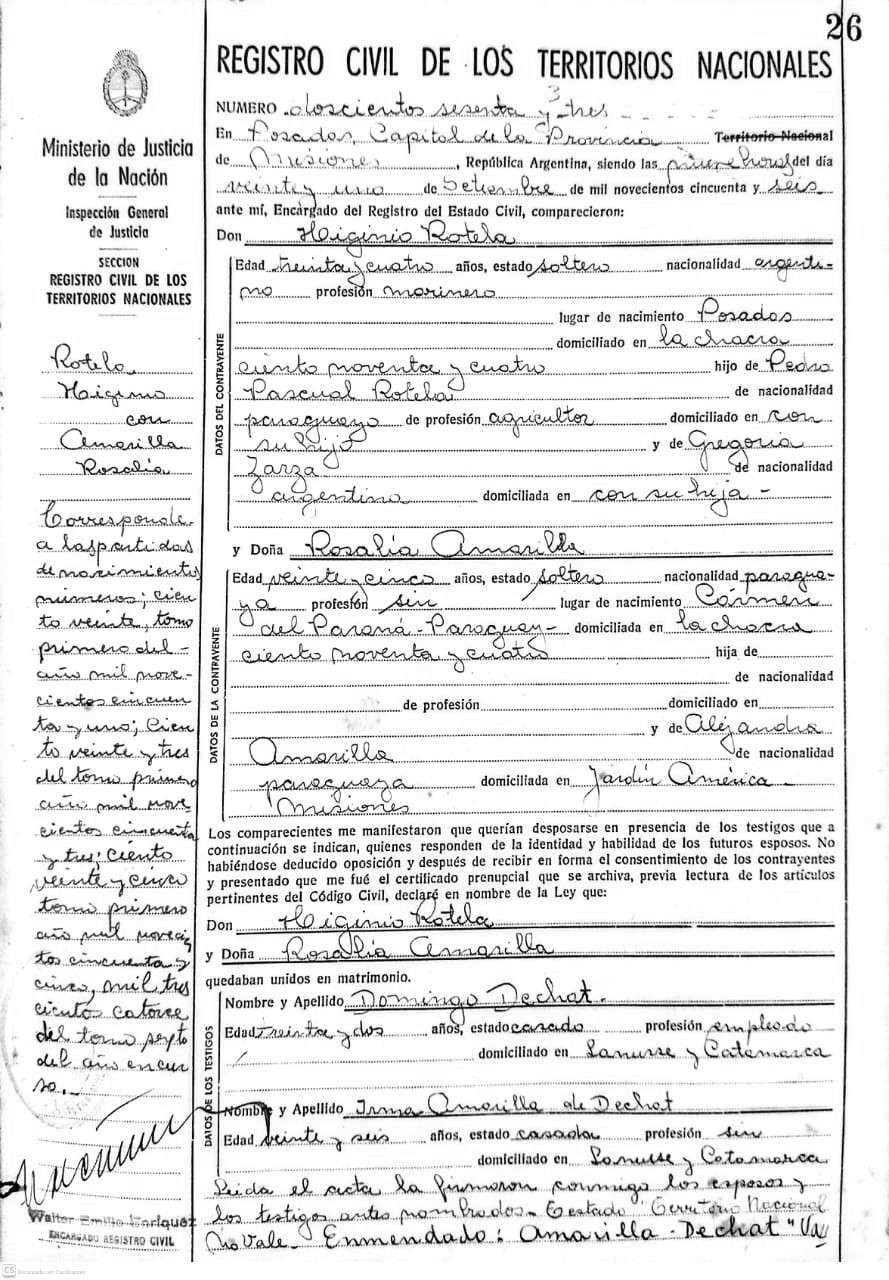 26
REGISTRO CIVIL DE LOS TERRITORIOS NACIONALES
NUMERO doscientos sesenta y tres
En Posadas, Capital de la Provincia Territorio Nacional
de Misiones, República Argentina, siendo las nueve horas del día
veinte y uno de Setiembre de mil novecientos cincuenta y seis
ante mí, Encargado del Registro del Estado Civil, comparecieron:
Don Higinio Rotela
DATOS DEL CONTRAYENTE
Edad treinta y cuatro años, estado soltero nacionalidad argenti-
no profesión marinero
lugar de nacimiento Posadas
domiciliado en la chacra
ciento noventa y cuatro hijo de Pedro
Pascual Rotela de nacionalidad
paraguayo de profesión agricultor domiciliado en con
su hijo y de Gregoria
Zarza de nacionalidad
argentina domiciliada en con su hija -
y Doña Rosalía Amarilla
DATOS DE LA CONTRAYENTE
Edad veinte y cinco años, estado soltera nacionalidad paragua-
ya profesión sin lugar de nacimiento Cármen
del Paraná - Paraguay - domiciliada en la chacra
ciento noventa y cuatro hija de
de nacionalidad
de profesión domiciliado en
y de Alejandra
Amarilla de nacionalidad
paraguaya domiciliada en Jardín América -
Misiones
Los comparecientes me manifestaron que querían desposarse en presencia de los testigos que a
continuación se indican, quienes responden de la identidad y habilidad de los futuros esposos. No
habiéndose deducido oposición y después de recibir en forma el consentimiento de los contrayentes
y presentado que me fué el certificado prenupcial que se archiva, previa lectura de los artículos
pertinentes del Código Civil, declaré en nombre de la Ley que:
Don Higinio Rotela
y Doña Rosalía Amarilla
quedaban unidos en matrimonio.
DATOS DE LOS TESTIGOS
Nombre y Apellido Domingo Dechat.
Edad treinta y dos años, estado casado profesión empleado
domiciliado en Lanusse y Catamarca
Nombre y Apellido Irma Amarilla de Dechat
Edad veinte y seis años, estado casada profesión sin
domiciliado en Lanusse y Catamarca
Leida el acta la firmaron conmigo los esposos y
los testigos antes nombrados - Testado: Territorio Nacional
No vale - Enmendado: Amarilla - Dechat "Vale
Ministerio de Justicia
de la Nación
Inspección General
de Justicia
SECCION
REGISTRO CIVIL DE LOS
TERRITORIOS NACIONALES
Rotela
Higinio
con
Amarilla
Rosalía
Corresponde
a las partidas
de nacimiento
números; cien
to veinte, tomo
primero del -
año mil nove-
cientos cincuen
ta y uno; Cien
to veinte y tres
del tomo primero
año mil nove
cientos cincuenta
y tres; ciento
veinte y cinco
tomo primero
año mil novecien
tos cincuenta y
cinco, mil tres
cientos catorce
del tomo sexto
del año en cur
so. -
Walter Emilio Enriquez
ENCARGADO REGISTRO CIVIL
CS Escaneado con CamScanner